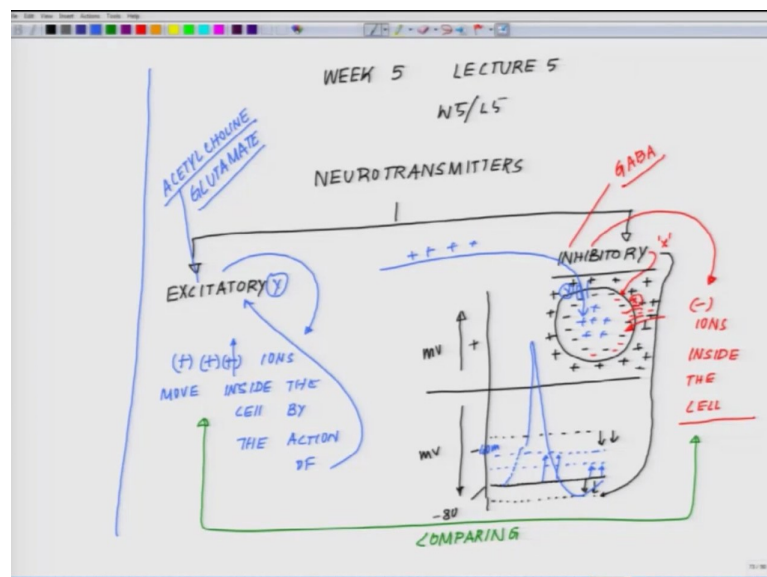 File Edit View Insert Actions Tools Help
WEEK 5 LECTURE 5
W5/L5
NEUROTRANSMITTERS
ACETYLCHOLINE
GLUTAMATE
GABA
EXCITATORY Y
INHIBITORY 'x'
(+) (+) (+) IONS
MOVE INSIDE THE
CELL BY
THE ACTION
OF
(-)
IONS
INSIDE
THE
CELL
mv +
mv
-80
COMPARING